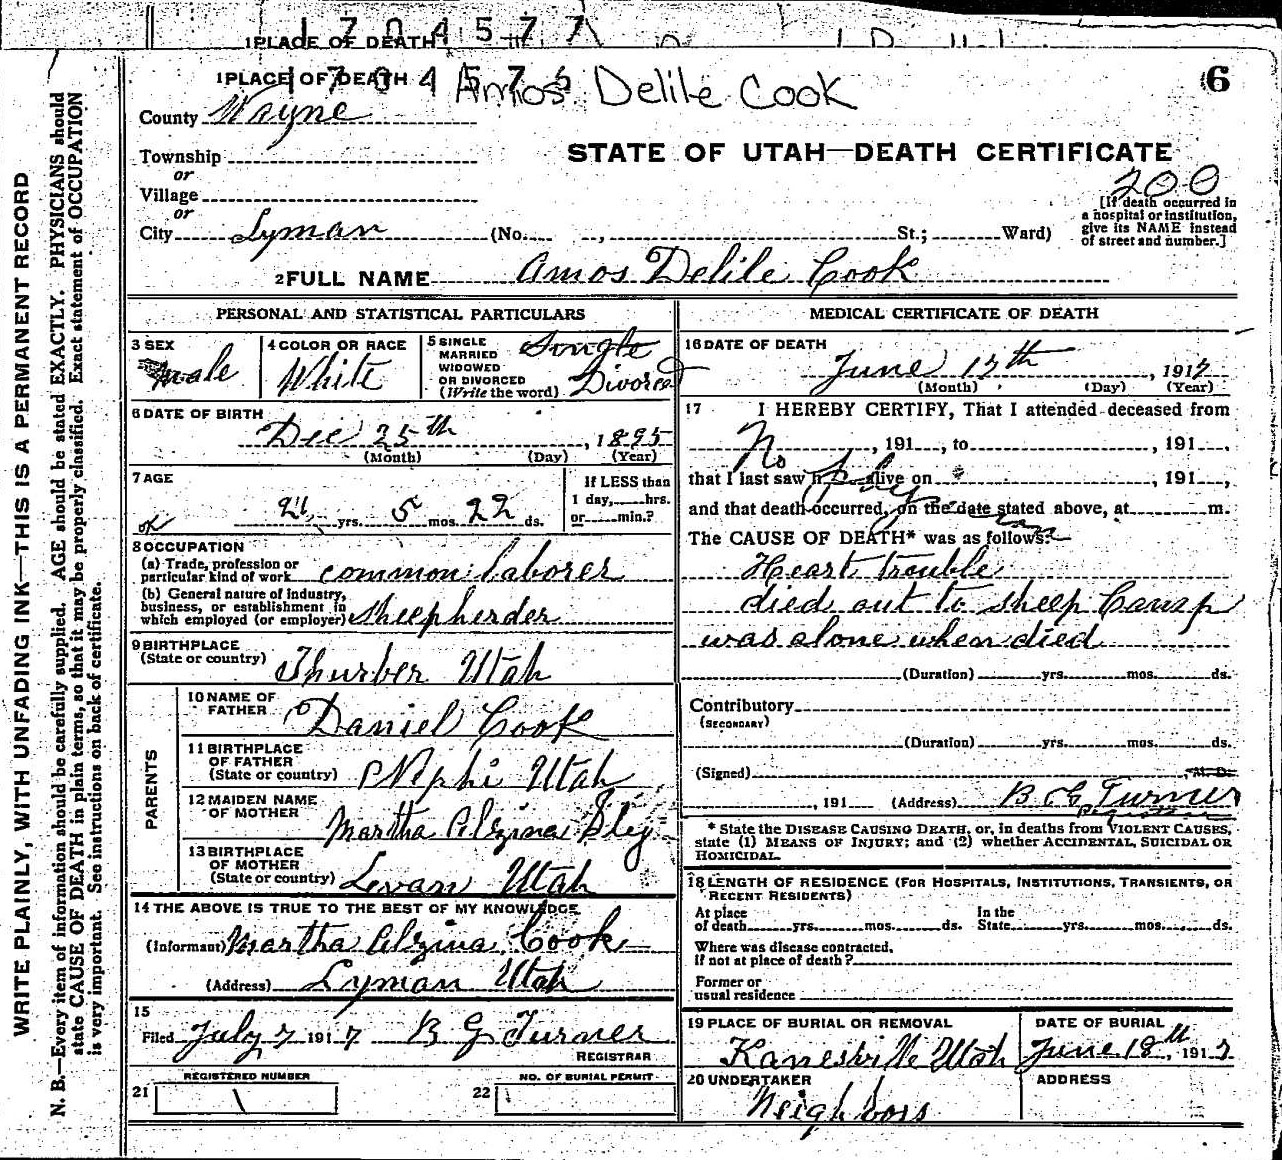 1704577
1 PLACE OF DEATH
1 PLACE OF DEATH
Amos Delile Cook
6
County Wayne
STATE OF UTAH—DEATH CERTIFICATE
Township
or
200
Village
or
[If death occurred in a hospital or institution, give its NAME instead of street and number.]
City Lyman (No. , St.; Ward)
2 FULL NAME Amos Delile Cook
PERSONAL AND STATISTICAL PARTICULARS
3 SEX
Male
4 COLOR OR RACE
White
5 SINGLE
MARRIED
WIDOWED
OR DIVORCED
(Write the word)
Single
Divorced
6 DATE OF BIRTH
Dec 25th, 1895
(Month) (Day) (Year)
7 AGE
21 yrs. 5 mos. 22 ds.
If LESS than
1 day, hrs.
or min.?
ok
8 OCCUPATION
(a) Trade, profession or
particular kind of work common laborer
(b) General nature of industry,
business, or establishment in
which employed (or employer) sheepherder
9 BIRTHPLACE
(State or country) Thurber Utah
PARENTS
10 NAME OF
FATHER Daniel Cook
11 BIRTHPLACE
OF FATHER
(State or country) Nephi Utah
12 MAIDEN NAME
OF MOTHER Martha Elzina
13 BIRTHPLACE
OF MOTHER
(State or country) Levan Utah
14 THE ABOVE IS TRUE TO THE BEST OF MY KNOWLEDGE
(Informant) Martha Elzina Cook
(Address) Lyman Utah
15
Filed July 7 1917 B G Turner
REGISTRAR
REGISTERED NUMBER
21
NO. OF BURIAL PERMIT
22
MEDICAL CERTIFICATE OF DEATH
16 DATE OF DEATH
June 17th, 1917
(Month) (Day) (Year)
17 I HEREBY CERTIFY, That I attended deceased from
No , 191 , to , 191 ,
that I last saw h alive on , 191 ,
physician
and that death occurred, on the date stated above, at m.
The CAUSE OF DEATH* was as follows:
Heart trouble
died out to sheep Camp
was alone when died
(Duration) yrs. mos. ds.
Contributory
(SECONDARY)
(Duration) yrs. mos. ds.
(Signed) M. D.
, 191 (Address) B G Turner
Registrar
* State the DISEASE CAUSING DEATH, or, in deaths from VIOLENT CAUSES,
state (1) MEANS OF INJURY; and (2) whether ACCIDENTAL, SUICIDAL OR
HOMICIDAL.
18 LENGTH OF RESIDENCE (FOR HOSPITALS, INSTITUTIONS, TRANSIENTS, OR
RECENT RESIDENTS)
At place In the
of death yrs. mos. ds. State yrs. mos. ds.
Where was disease contracted,
if not at place of death?
Former or
usual residence
19 PLACE OF BURIAL OR REMOVAL
Kanesville Utah
DATE OF BURIAL
June 18th, 1917
20 UNDERTAKER
Neighbors
ADDRESS
WRITE PLAINLY, WITH UNFADING INK—THIS IS A PERMANENT RECORD
N. B.—Every item of information should be carefully supplied. AGE should be stated EXACTLY. PHYSICIANS should
state CAUSE OF DEATH in plain terms, so that it may be properly classified. Exact statement of OCCUPATION
is very important. See instructions on back of certificate.